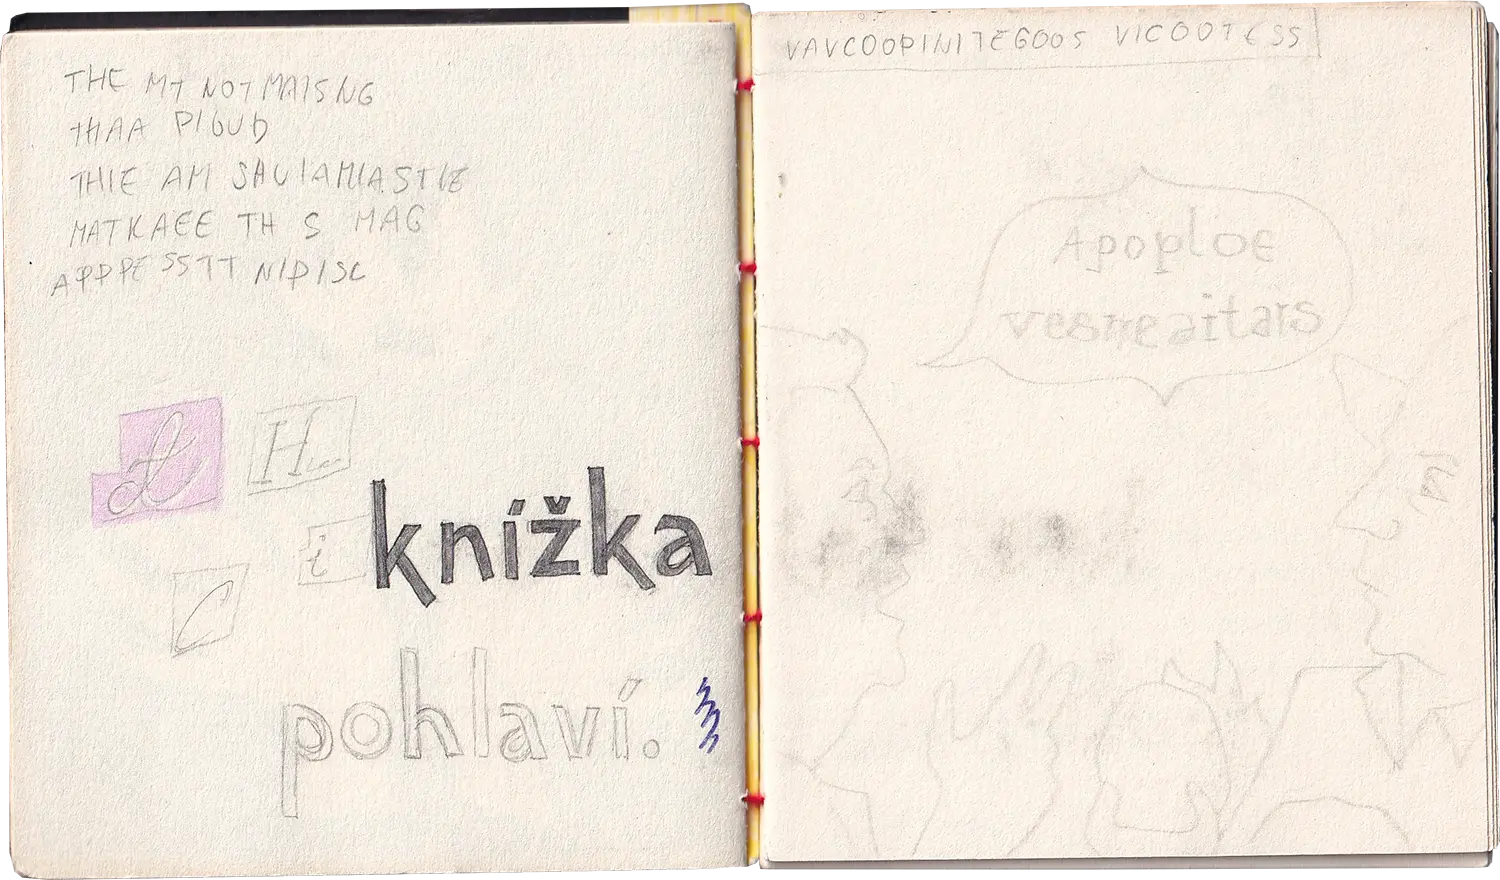 THE MT NOTMAISNG
THAA PIGUD
THIE AM SAUIAMIASTIE
MATKAEE TH S MAG
APPPE SSTT NIPISC
H
i
C
knížka
pohlaví.
VAVCOOPINITEGOOS VICOOTESS
Apoploe
vesrreaitars